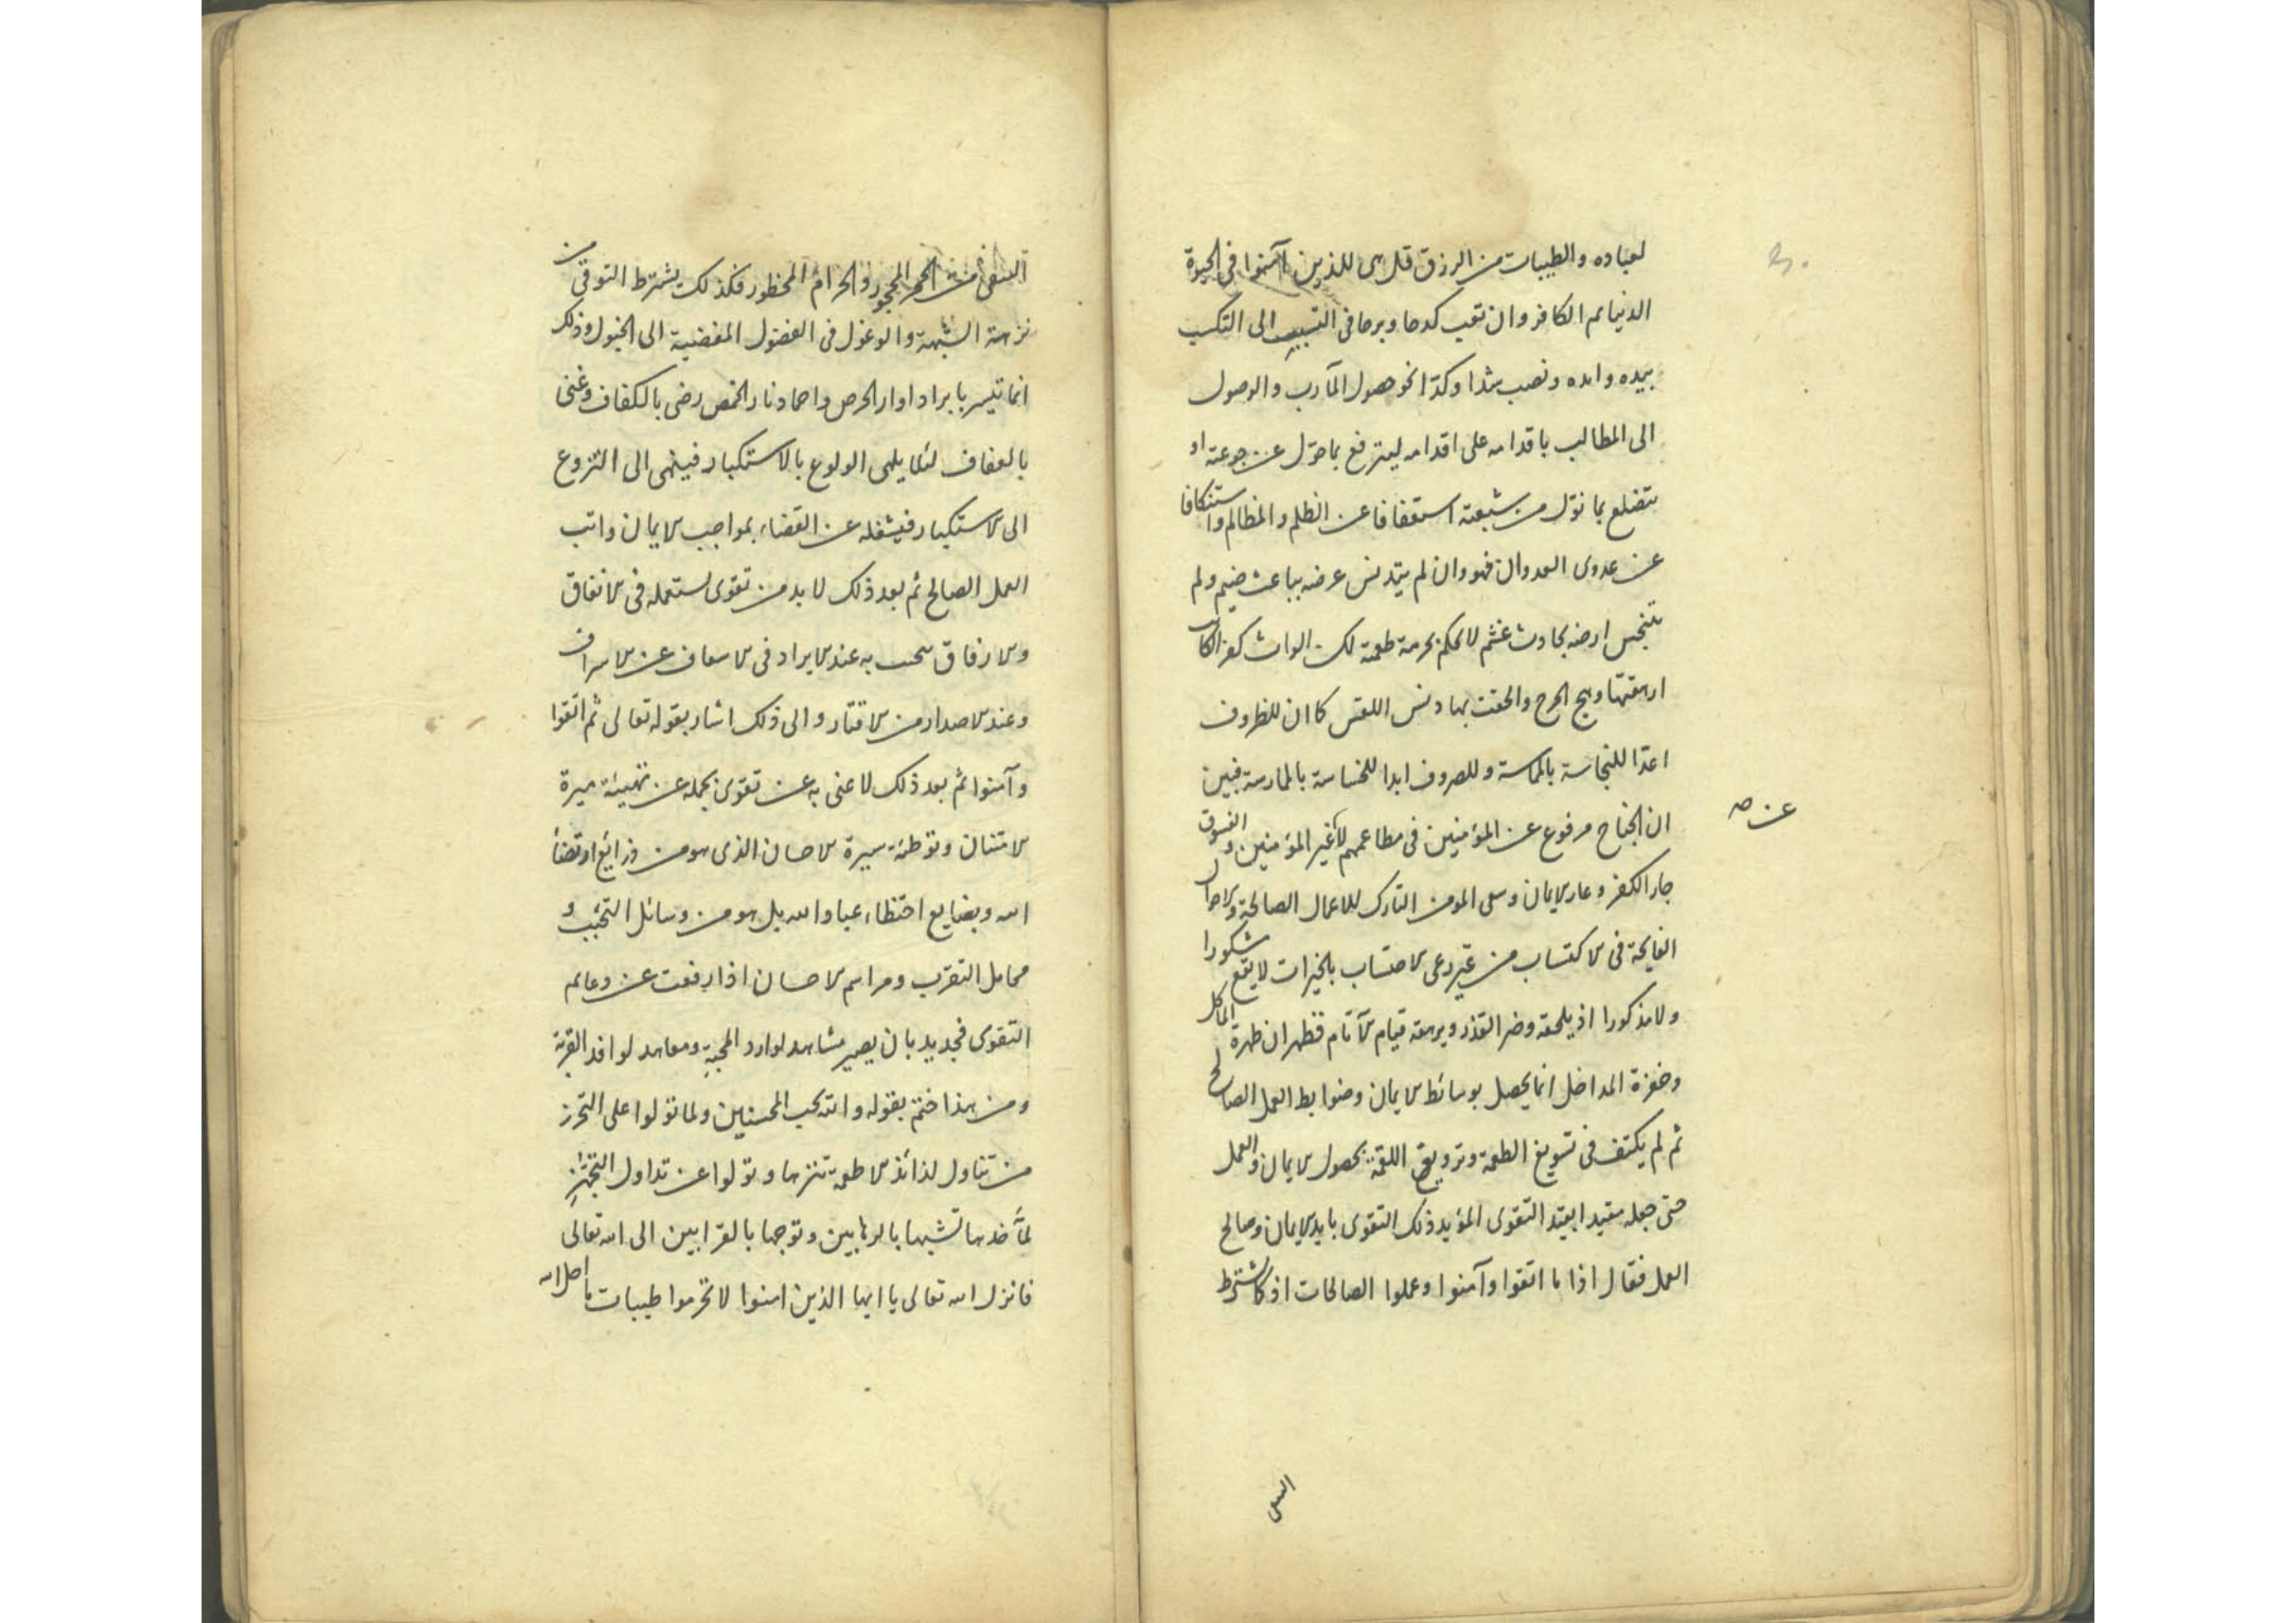 لعباده والطيبات من الرزق قل هى للذين آمنوا فى الحيوة
الدنيا ثم الكافر وان تعب كدحا وبرحا فى التسبب الى التكسب
بيده وايده ونصب شدا وكدّا نحو حصول المآرب والوصول
الى المطالب باقدامه على اقدامه ليترفع بما حوّل عن جوعته او
يتضلع بما نوّل من شبعته استعفافا عن الظلم والمظالم واستنكافا
عن عدوى العدوان فهو وان لم يتدنس عرضه بباعث ضيم ولم
يتنجس ارضه بحادث غشم لا يحكم بحرمة طعمته لكن الواث كفر الكاسب
ارهقتها وهج الحرج والحقت بها دنس اللقس كما ان للظروف
اعدّا للنجاسة بالمماسة وللصروف ابدا للخساسة بالممارسة فتبين
ان الجناح مرفوع عن المؤمنين فى مطاعمهم لا غير المؤمنين والفسوق
جار الكفر وعار الايمان وسعى المومن التارك للاعمال الصالحة والاحوال
الفايحة فى الاكتساب من غير دعى الاحتساب بالخيرات لا يقع شكورا
ولا مذكورا اذ يلحقه وضر القذر ويرهقه قيام الآثام فظهر ان طهرة المآكل
وخفرة المداخل انما يحصل بوسائط الايمان وضوابط العمل الصالح
ثم لم يكتف فى تسويغ الطعمة وترويق اللقمة بحصول الايمان والعمل
حتى جعله مقيدا بقيد التقوى المؤيد ذلك التقوى بايد الايمان وصالح
العمل فقال اذا ما اتقوا وآمنوا وعملوا الصالحات اذ كما اشترط
عن صه
التقى من الحجر المحجور والحرام المحظور فكذلك يشترط التوقى من
نزهة الشبهة والوغول فى الفضول المفضية الى الخبول وذلك
انما تيسر بابراد اوار الحرص واخماد نار الخمص رضى بالكفاف وغنى
بالعفاف لئلا يلهى الولوع بالاستكبار فينهى الى النزوع
الى الاستكبار فيشغله عن القضاء بمواجب الايمان واتب
العمل الصالح ثم بعد ذلك لا بد من تقوى يستعمله فى الانفاق
والارفاق به عند الايراد فى الاسعاف عن الاسراف
وعند الاصدار من الاقتار والى ذلك اشار بقوله تعالى ثم اتقوا
وآمنوا ثم بعد ذلك لا غنى به عن تقوى يحمله عن تهيئة ميرة
الامتنان وتوطئة سيرة الاحسان الذى هو من ذرائع ارتضاء
الله وبضايع احتظاء عباد الله بل هو من وسائل التحبّب و
محامل التقرّب ومراسم الاحسان اذا رفعت عن دعائم
التقوى فجدير بان يصير مشاهد لوارد المحبة ومعاهد لوافد القربة
ومن هذا ختم بقوله والله يحب المحسنين ولما تولوا على التحرز
من تناول لذائذ الاطعمة تنزها وتولوا عن تداول التجهز
لمآخذها تشبها بالرهابين وتوجها بالقرابين الى الله تعالى
فانزل الله تعالى يا ايها الذين امنوا لا تحرموا طيبات ما احل الله